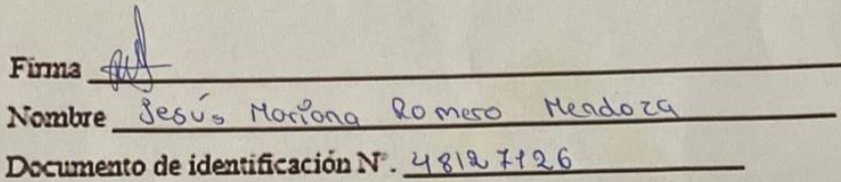 Firma
Nombre Jesús Mariana Romero Mendoza
Documento de identificación N°. 48127126